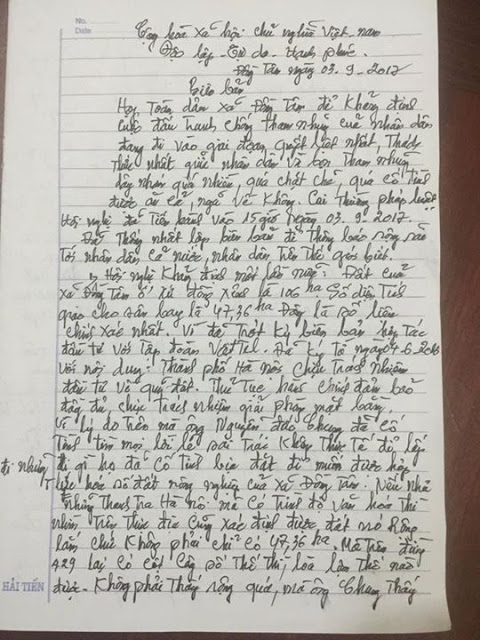 No.
Date
Cộng hòa xã hội chủ nghĩa Việt nam
Độc lập - Tự do - Hạnh phúc.
Đồng Tâm ngày 03.9.2017
Biên bản
Họp Toàn dân xã Đồng Tâm để khẳng định
cuộc đấu tranh chống tham nhũng của nhân dân
đang đi vào giai đoạn quyết liệt nhất, Thách
thức nhất giữa nhân dân và bọn tham nhũng
dây nhợ quá nhiều, quá chặt chẽ, quá cố tình
được ăn cả, ngã về không. Cai thường pháp luật
Hội nghị đã Tiến hành vào 15 giờ ngày 03.9.2017.
Đã Thống nhất lập biên bản để Thông báo rộng rãi
Tới nhân dân cả nước, nhân dân Trên Thế giới biết.
Hội nghị khẳng định một lần nữa: Đất của
xã Đồng Tâm ở xứ đồng Sênh là 106 ha. Số diện Tích
giao cho sân bay là 47,36 ha Đây là số liệu
chính xác nhất. Vì đã Trót ký biên bản hợp Tác
đầu tư với Tập đoàn Vietel. Đã ký Tờ ngày
với nội dung: Thành phố Hà nội Chịu Trách nhiệm
đầu tư về quỹ đất. Thủ Tục hành chính đảm bảo
đầy đủ, chịu trách nhiệm giải phóng mặt bằng.
Vì lý do Trên mà ông Nguyễn đức Chung đã Cố
Tình tìm mọi lời lẽ sai Trái không Thực Tế để lấy
đi những gì họ đã cố Tình bịa đặt đi muốn được hợp
Thức hóa số đất nông nghiệp của xã Đồng Tâm. Nếu nhà
những Thanh tra Hà Nội mà có Trình độ văn hóa Thì
nhìn Trên thực địa Cũng xác định được đất nó Rộng
lắm, chứ không phải chỉ có 47,36 ha. Mà Trên đường
429 lại có cột cây số Thế Thì, lòa làm Thế nào
được. Không phải Thấy rộng quá, mà ông Chung Thấy
HẢI TIẾN